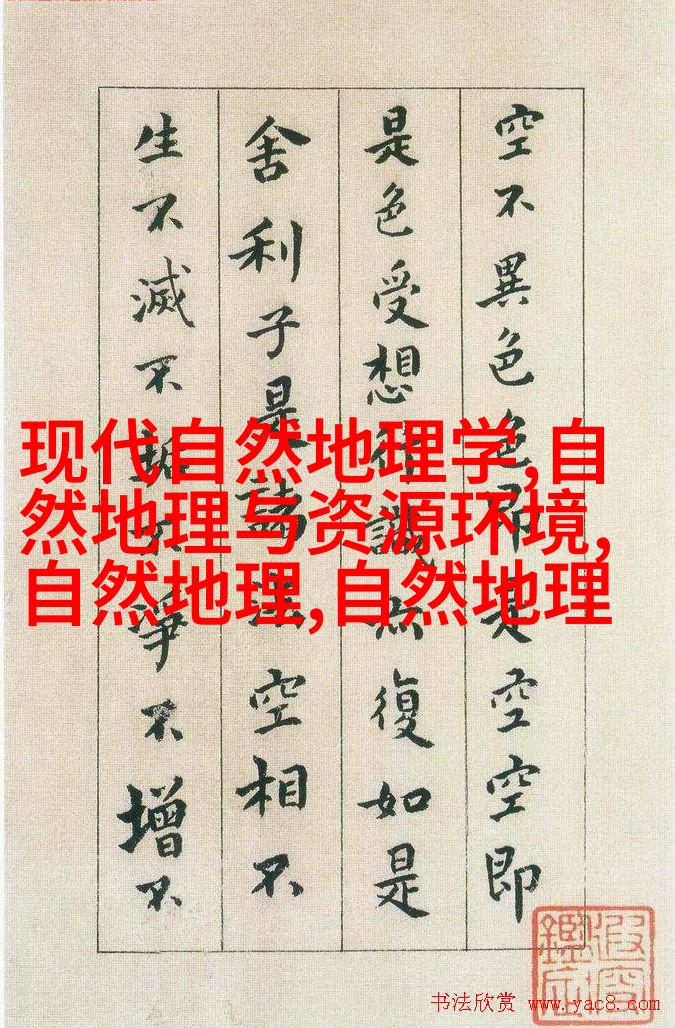 空不異色色即是空空即
是色受想行識亦復如是
舍利子是諸法空相不
生不滅不垢不淨不增不
现代自然地理学,自
然地理与资源环境,
自然地理,自然地理
书法欣赏 www.yac8.com